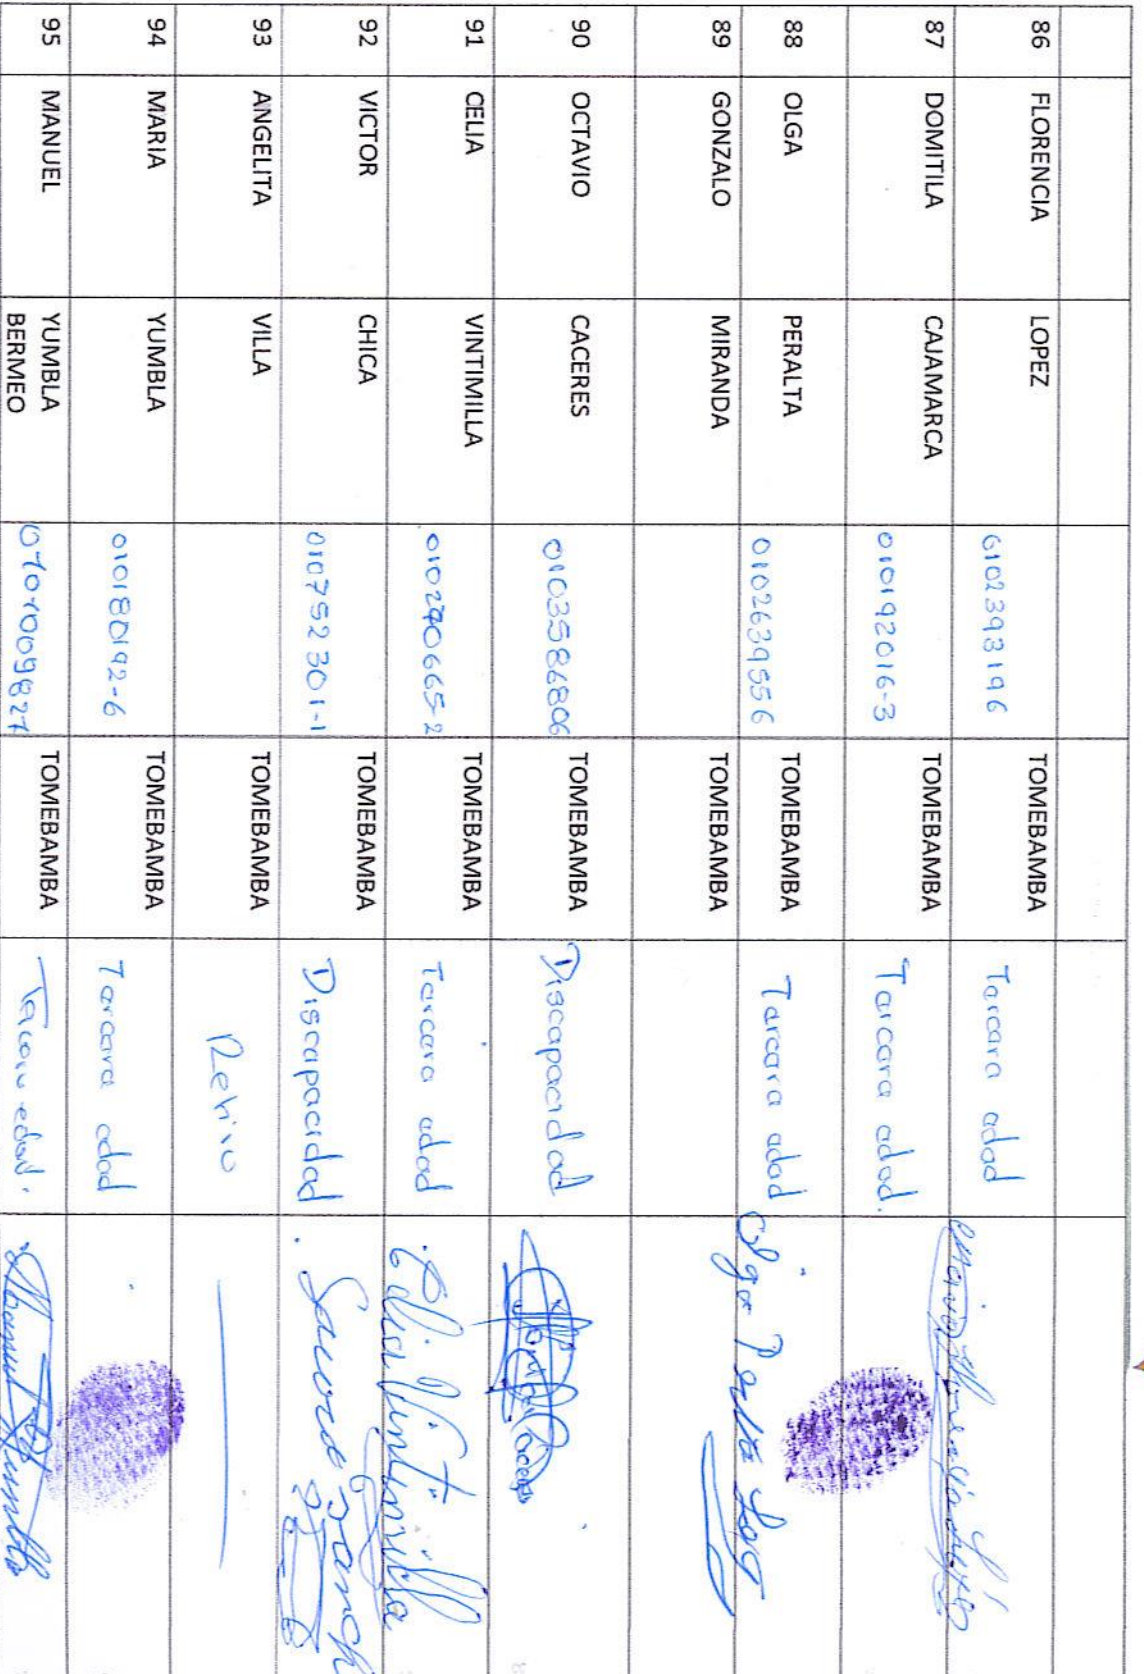 86 FLORENCIA LOPEZ 0102393196 TOMEBAMBA Tercera edad
87 DOMITILA CAJAMARCA 010192016-3 TOMEBAMBA Tercera edad.
88 OLGA PERALTA 0102639556 TOMEBAMBA Tercera edad Olga Peralta
89 GONZALO MIRANDA TOMEBAMBA
90 OCTAVIO CACERES 0103586806 TOMEBAMBA Discapacidad
91 CELIA VINTIMILLA TOMEBAMBA Tercera edad Celia Vintimilla
92 VICTOR CHICA 010752301-1 TOMEBAMBA Discapacidad
93 ANGELITA VILLA TOMEBAMBA Retiro
94 MARIA YUMBLA 010180192-6 TOMEBAMBA Tercera edad
95 MANUEL YUMBLA BERMEO TOMEBAMBA Tercera edad. Manuel Yumbla